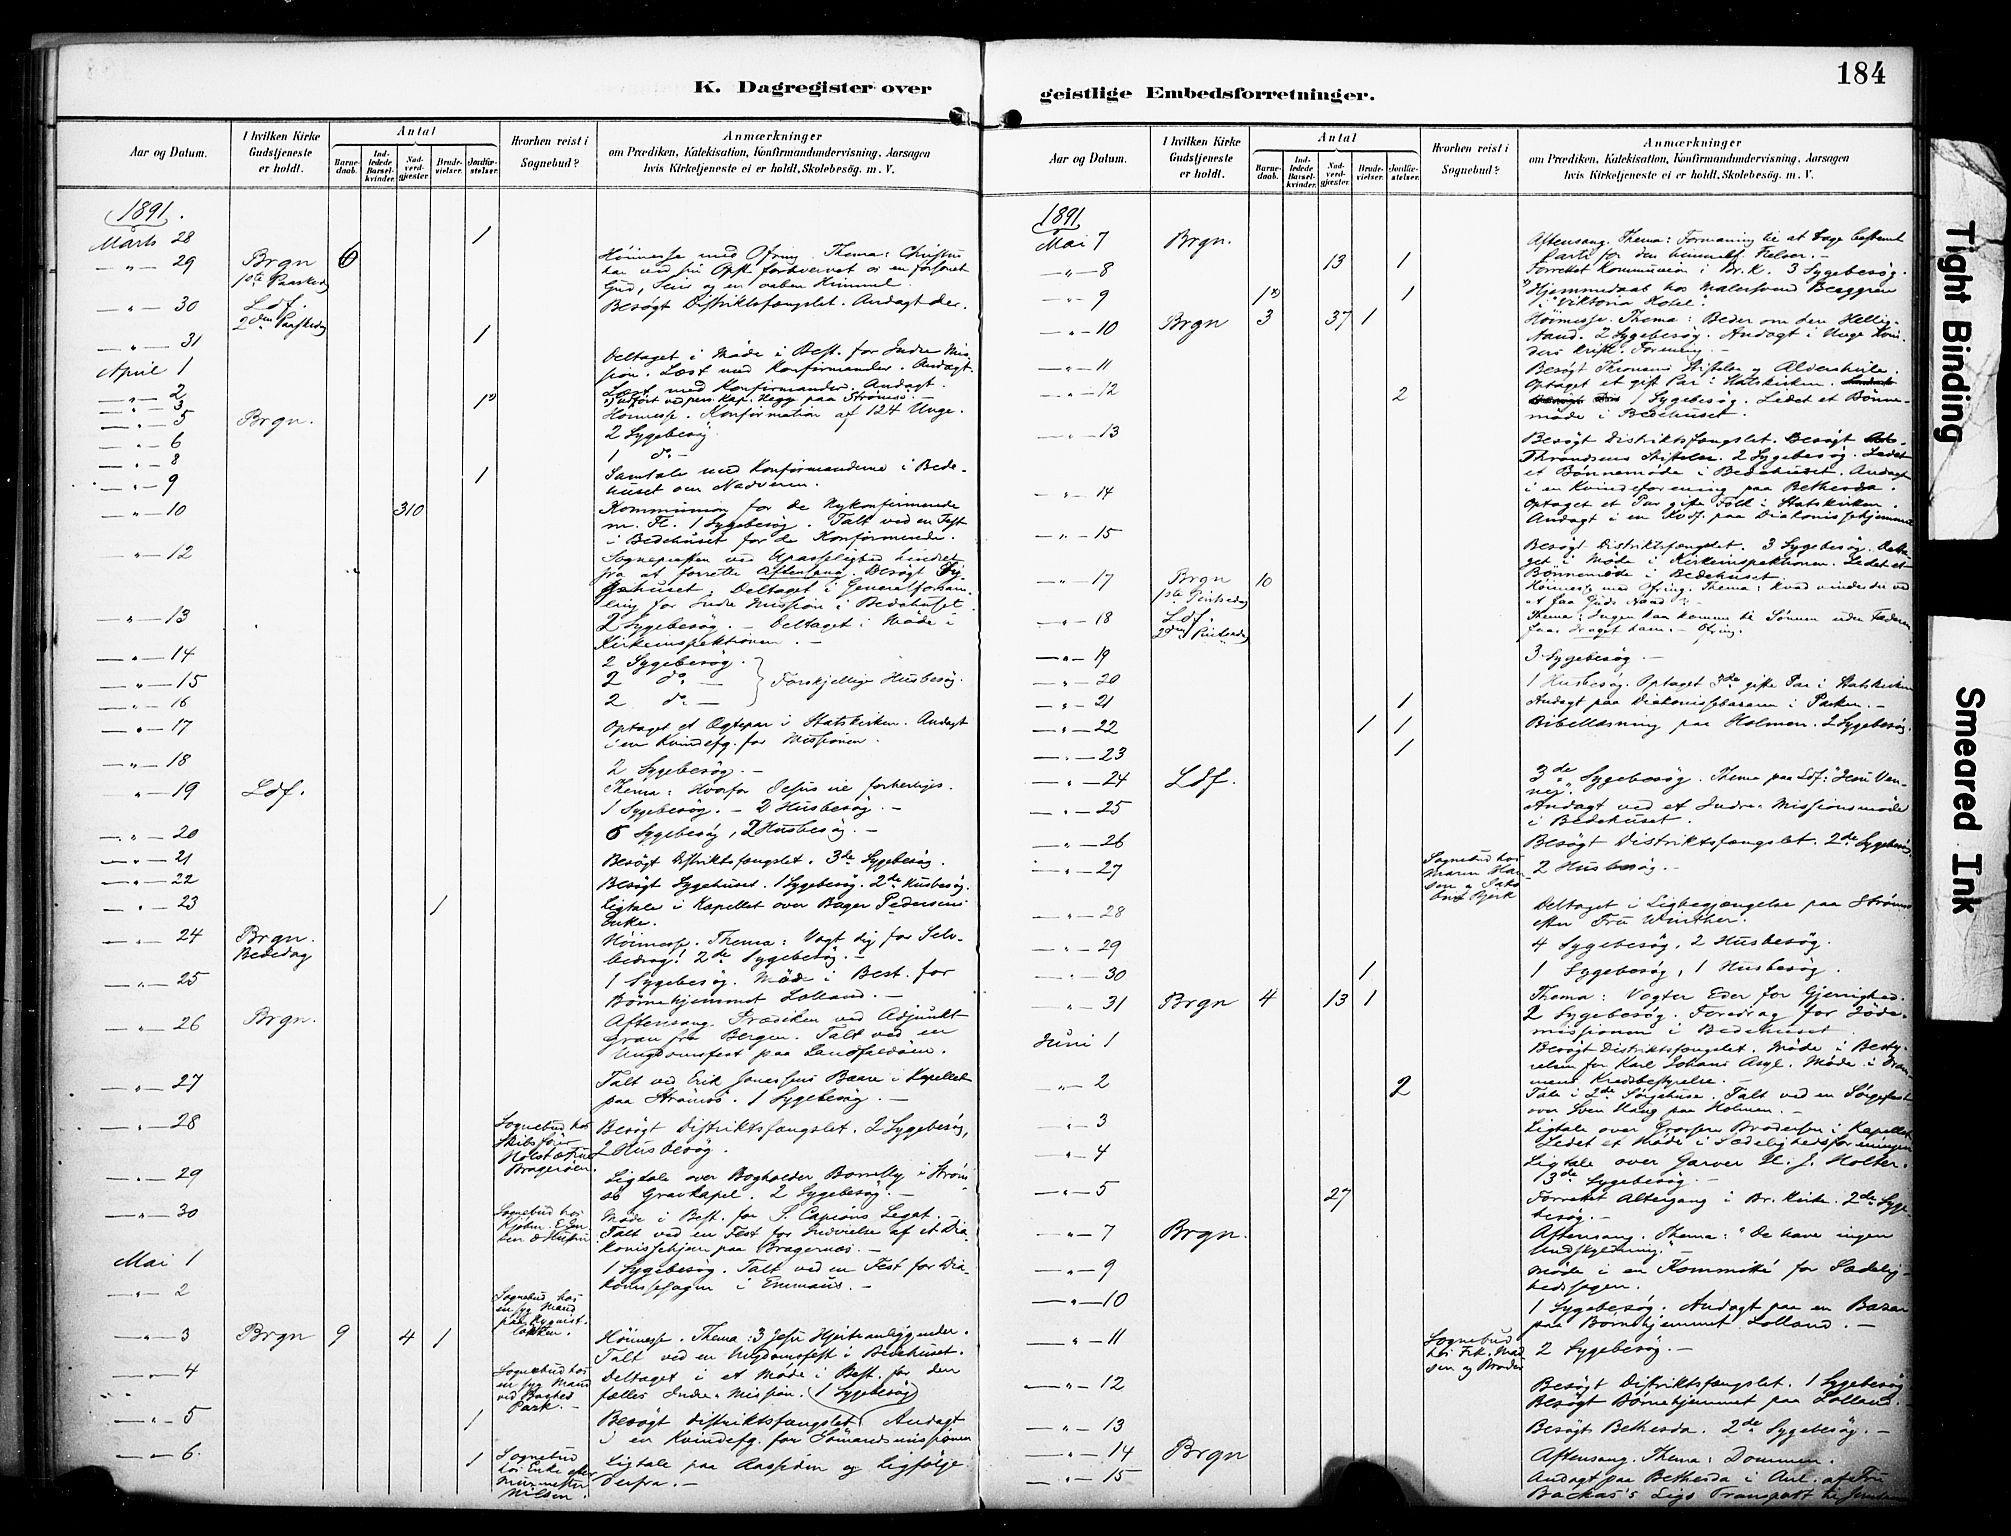 184
K. Dagregister over geistlige Embedsforretninger.
Aar og Datum.
I hvilken Kirke Gudstjeneste er holdt.
Antal
Barnedaab.
Indledede Barselkvinder.
Nadverdgjester.
Brudevielser.
Jordfæstelser.
Hvorhen reist i Sognebud?
Anmærkninger
om Prædiken, Katekisation, Konfirmandundervisning, Aarsagen
hvis Kirketjeneste ei er holdt, Skolebesøg. m. V.
1891.
Marts 28 1
29 Brgn 6 Høimesse med Ofring. Thema: Christus
1ste Paaskedag har ved sin Opst. forhvervet os en forsonet
Gud, Seir og en aaben Himmel.
30 Ldf. Besøgt Distriktsfængslet. Andagt der.
2den Paaskedag
31 1
Deltaget i Møde i Best. for Indre Mis-
April 1 sion. Læst med Konfirmander. Andagt.
2 Læst med Konfirmander. Andagt.
3 1
5 Brgn. Høimesse. Konfirmation af 124 Unge.
6 2 Sygebesøg
8 1 do -
9 1 Samtale med Konfirmanderne i Bede-
huset om Nadveren.
10 310 Kommunion for de Nykonfirmerede
m. Fl. 1 Sygebesøg. Talt ved en Fest
i Bedehuset for de Konfirmerede.
12 Sognepræsten ved Upasselighed hindret
fra at forrette Aftensang. Besøgt Sy-
gehuset. Deltaget i Generalforsam-
ling for Indre Mission i Bedehuset.
13 2 Sygebesøg. - Deltaget i Møde i
Kirkeinspektionen. -
14 2 Sygebesøg.
15 2 do - Forskjellige Husbesøg.
16 2 do -
17 Optaget et Ægtepar i Statskirken. Andagt
i en Kvindefg. for Missionen.
18 2 Sygebesøg. -
19 Ldf. Thema: Hvorfor Jesus vil forherliges.
1 Sygebesøg. - 2 Husbesøg. -
20 6 Sygebesøg, 2 Husbesøg. -
21 Besøgt Distriktsfængslet. 3de Sygebesøg.
22 Besøgt Sygehuset. 1 Sygebesøg. 2de Husbesøg.
23 1 Ligtale i Kapellet over Bager Pedersens
Enke.
24 Brgn. Høimesse. Thema: Vogt dig for Selv-
Bededag bedrag! 2de Sygebesøg. -
25 1 Sygebesøg. Møde i Best. for
Børnehjemmet Lolland. -
26 Brgn. Aftensang. Prædiken ved Adjunkt
Gran fra Bergen. Talt ved en
Ungdomsfest paa Landfaldøen.
27 Talt ved Erik Jonassens Baare i Kapellet
paa Strømsø. 1 Sygebesøg. -
28 Sognebud hos Besøgt Distriktsfængslet. 2 Sygebesøg,
Skibsfører 2 Husbesøg.
Bragerøen.
29 Ligtale over Bogholder Bornsby i Strøms-
ø Gravkapel. 2 Sygebesøg. -
30 Sognebud hos Møde i Best. for Legat. -
Talt ved en Fest for Indvielse af et Dia-
konissehjem paa Bragernæs. -
Mai 1 1 Sygebesøg. Talt ved en Fest for Dia-
konissesagen i Emmaus. -
2 Sognebud hos
en syg Mand
3 Brgn 9 4 1 Høimesse. Thema: 3 Jesu Hjerteanliggender.
Talt ved en Ungdomsfest i Bedehuset.
4 Sognebud hos Deltaget i et Møde i Best. for den
en syg Mand fælles Indre-Mission. (1 Sygebesøg)
ved
Park. -
5 1 Besøgt Distriktsfængslet. Andagt
i en Kvindefg. for Sømandsmissionen
6 1 Sognebud Ligtale paa Aassiden og Ligfølge
hos Enke efter derfra. -
Murmester
Nilsen.
Aar og Datum.
I hvilken Kirke Gudstjeneste er holdt.
Antal
Barnedaab.
Indledede Barselkvinder.
Nadverdgjester.
Brudevielser.
Jordfæstelser.
Hvorhen reist i Sognebud?
Anmærkninger
om Prædiken, Katekisation, Konfirmandundervisning, Aarsagen
hvis Kirketjeneste ei er holdt, Skolebesøg. m. V.
1891
Mai 7 Brgn. Aftensang. Thema: Formaning til at tage bestemt
Parti for den himmelsk. Frelser. -
8 13 1 Forrettet Kommunion i Br. K. 3 Sygebesøg.
9 1x) 1 Hjemmedaab hos Malersvend Berggren
i "Viktoria Hotel".
10 Brgn 3 37 1 Høimesse. Thema: Beder om den Hellig-
Aand. 2 Sygebesøg. Andagt i Unge Kvin-
ders kristl. Forening. -
11 Besøgt Thronsens Stiftelse og Aldershvile.
12 2 Optaget et gift Par i Statskirken.
1 Sygebesøg. Ledet et Bønne-
møde i Bedehuset.
13 Besøgt Distriktsfængslet. Besøgt
Throndsens Stiftelse. 2 Sygebesøg. Ledet
et Bønnemøde i Bedehuset. Andagt
i en Kvindeforening paa Bethesda.
14 Optaget et Par gifte Folk i Statskirken.
Andagt i en Kvdf. paa Diakonissehjemmet
15 Besøgt Distriktsfængslet. 3 Sygebesøg. Delta-
get i Møde i Kirkeinspektionen. Ledet et
Bønnemøde i Bedehuset.
17 Brgn 10 Høimesse med Ofring. Thema: Hvad vindes der ved
1ste Pintsedag at faa Guds Aand? -
18 Ldf. Thema: Ingen kan komme til Sønnen uden Faderen
2den Pintsedag faar draget ham. - Ofring.
19 3 Sygebesøg. -
20 1 Husbesøg. Optaget 3de gifte Par i Statskirken
21 1 Andagt paa Diakonissebasaren i Parken. -
22 1 1 Bibellæsning paa Holmen. 2 Sygebesøg.
23 1
24 Ldf. 3de Sygebesøg. Thema paa Ldf: "Jesu Ven-
ner".
25 Andagt ved et Indre-Missionsmøde
i Bedehuset.
26 Besøgt Distriktsfængslet. 2de Sygebesøg.
27 Sognebud hos 2 Husbesøg. -
Maren Han-
sen og Jako-
bine Bjerk
28 Deltaget i Ligbegjængelse paa Strømsø
efter Fru Winther.
29 4 Sygebesøg, 2 Husbesøg.
30 1 1 Sygebesøg, 1 Husbesøg.
31 Brgn 4 13 1 Thema: Vogter Eder for Gjerrighed.
2 Sygebesøg. Foredrag for Jøde-
missionen i Bedehuset.
Juni 1 Besøgt Distriktsfængslet. Møde i Besty-
relsen for Karl Johans Asyl. Møde i Dram-
mens Kredsbestyrelse. -
2 2 Tale i 2de Sørgehuse. Talt ved en Sørgefest
over Sven Haug paa Holmen. -
3 Ligtale over Grosserer Brodersen i Kapellet
Ledet et Møde i Sædelighedsforeningen
4 Ligtale over Garver H. J. Holter.
3de Sygebesøg. -
5 27 Forrettet Altergang i Br. Kirke. 2de Syge-
besøg. -
7 Brgn. Aftensang. Thema: "De have ingen
Undskyldning." -
9 Møde i en Kommitté for Sædelig-
hedssagen.
10 1 Sygebesøg. Andagt paa en Bazar
paa Børnehjemmet Lolland. -
11 Sognebud 2 Sygebesøg. -
hos Frk. Mad
sen og Broder
12 Besøgt Distriktsfængslet. 1 Sygebesøg
Besøgt Børnehjemmet paa Lolland. -
13 Besøgt Bethesda. 2de Sygebesøg. -
14 Brgn Aftensang. Thema: Dommen.
15 Andagt paa Bethesda i Anl. af Fru
Backas's Ligs Transport til
Tight Binding
Smeared Ink